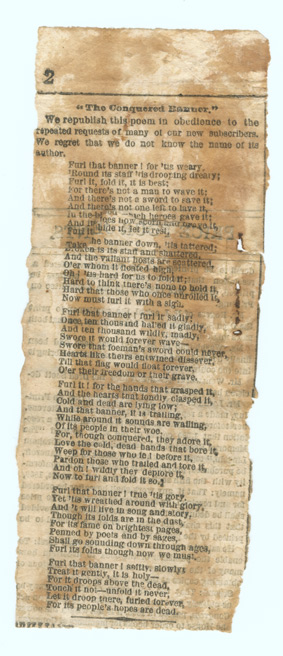 2
"The Conquered Banner."
We republish this poem in obedience to the
repeated requests of many of our new subscribers.
We regret that we do not know the name of its
author.
Furl that banner! for 'tis weary,
'Round its staff 'tis drooping dreary;
Furl it, fold it, it is best;
For there's not a man to wave it;
And there's not a sword to save it;
And there's not one left to lave it,
In the heroes gave it;
And its foes now scorn and brave it,
Furl it, hide it, let it rest.
Take the banner down, 'tis tattered;
Broken is its staff and shattered,
And the valiant hosts are scattered,
O'er whom it floated high,
Oh! 'tis hard for us to fold it;
Hard to think there's none to hold it,
Hard that those who once unrolled it,
Now must furl it with a sigh.
Furl that banner! furl it sadly;
Once ten thousand hailed it gladly,
And ten thousand wildly, madly,
Swore it would forever wave—
Swore that foeman's sword could never,
Hearts like theirs entwined dissever,
Till that flag would float forever,
O'er their freedom or their grave.
Furl it! for the hands that grasped it,
And the hearts that fondly clasped it,
Cold and dead are lying low;
And that banner, it is trailing,
While around it sounds are wailing,
Of its people in their woe.
For, though conquered, they adore it,
Love the cold, dead hands that bore it,
Weep for those who fell before it,
Pardon those who trailed and tore it,
And oh! wildly they deplore it,
Now to furl and fold it so.
Furl that banner! true 'tis gory,
Yet 'tis wreathed around with glory,
And 't will live in song and story,
Though its folds are in the dust,
For its fame on brightest pages,
Penned by poets and by sages,
Shall go sounding down through ages,
Furl its folds though now we must.
Furl that banner! softly, slowly;
Treat it gently, it is holy—
For it droops above the dead,
Touch it not—unfold it never,
Let it droop there, furled forever,
For its people's hopes are dead.